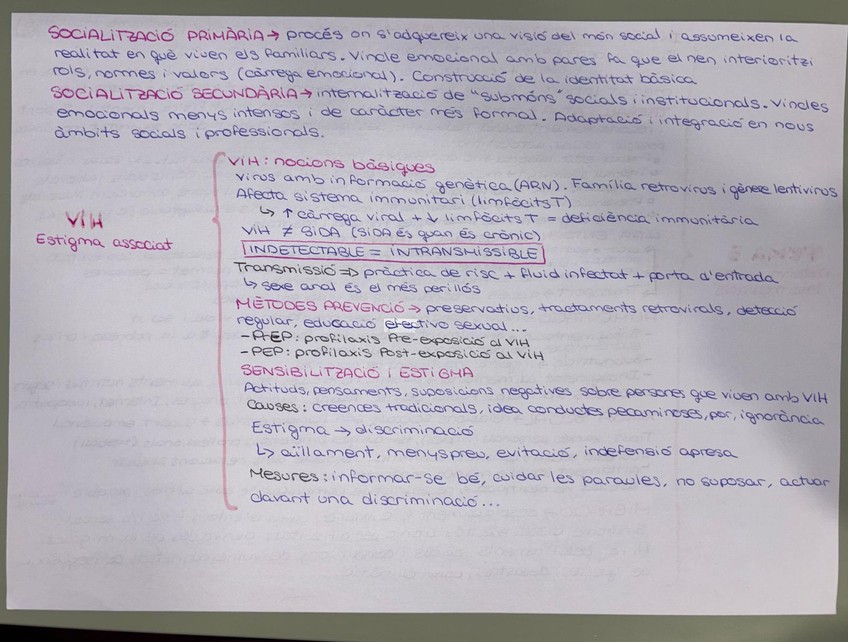 SOCIALITZACIÓ PRIMÀRIA → procés on s'adquereix una visió del món social i assumeixen la
realitat en què viven els familiars. Vincle emocional amb pares fa que el nen interioritzi
rols, normes i valors (càrrega emocional). Construcció de la identitat bàsica
SOCIALITZACIÓ SECUNDÀRIA → internalització de "submóns" socials i institucionals. Vincles
emocionals menys intensos i de caràcter més formal. Adaptació i integració en nous
àmbits socials i professionals.
VIH
Estigma associat
VIH: nocions bàsiques
Virus amb informació genètica (ARN). Família retrovirus i gènere lentivirus
Afecta sistema immunitari (limfòcits T)
↳ ↑ càrrega viral + ↓ limfòcits T = deficiència immunitària
VIH ≠ SIDA (SIDA és quan és crònic)
INDETECTABLE = INTRANSMISSIBLE
Transmissió => pràctica de risc + fluid infectat + porta d'entrada
↳ sexe anal és el més perillós
MÈTODES PREVENCIÓ → preservatius, tractaments retrovirals, detecció
regular, educació efectivo sexual...
- PrEP: profilaxis Pre-exposició al VIH
- PEP: profilaxis Post-exposició al VIH
SENSIBILITZACIÓ I ESTIGMA
Actituds, pensaments, suposicions negatives sobre persones que viven amb VIH
Causes: creences tradicionals, idea conductes pecaminoses, por, ignorància
Estigma → discriminació
↳ aïllament, menyspreu, evitació, indefensió apresa
Mesures: informar-se bé, cuidar les paraules, no suposar, actuar
davant una discriminació...